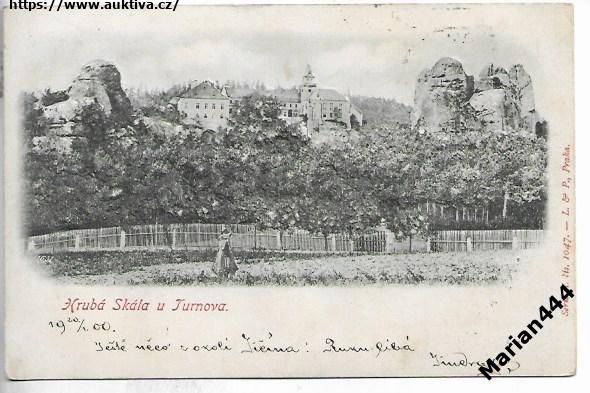 https://www.auktiva.cz/
Hrubá Skála u Turnova.
19 20/1. 00.
Ještě něco z okolí Jičína! Ruku líbá
L. & P., Praha.
1047.
Marian444